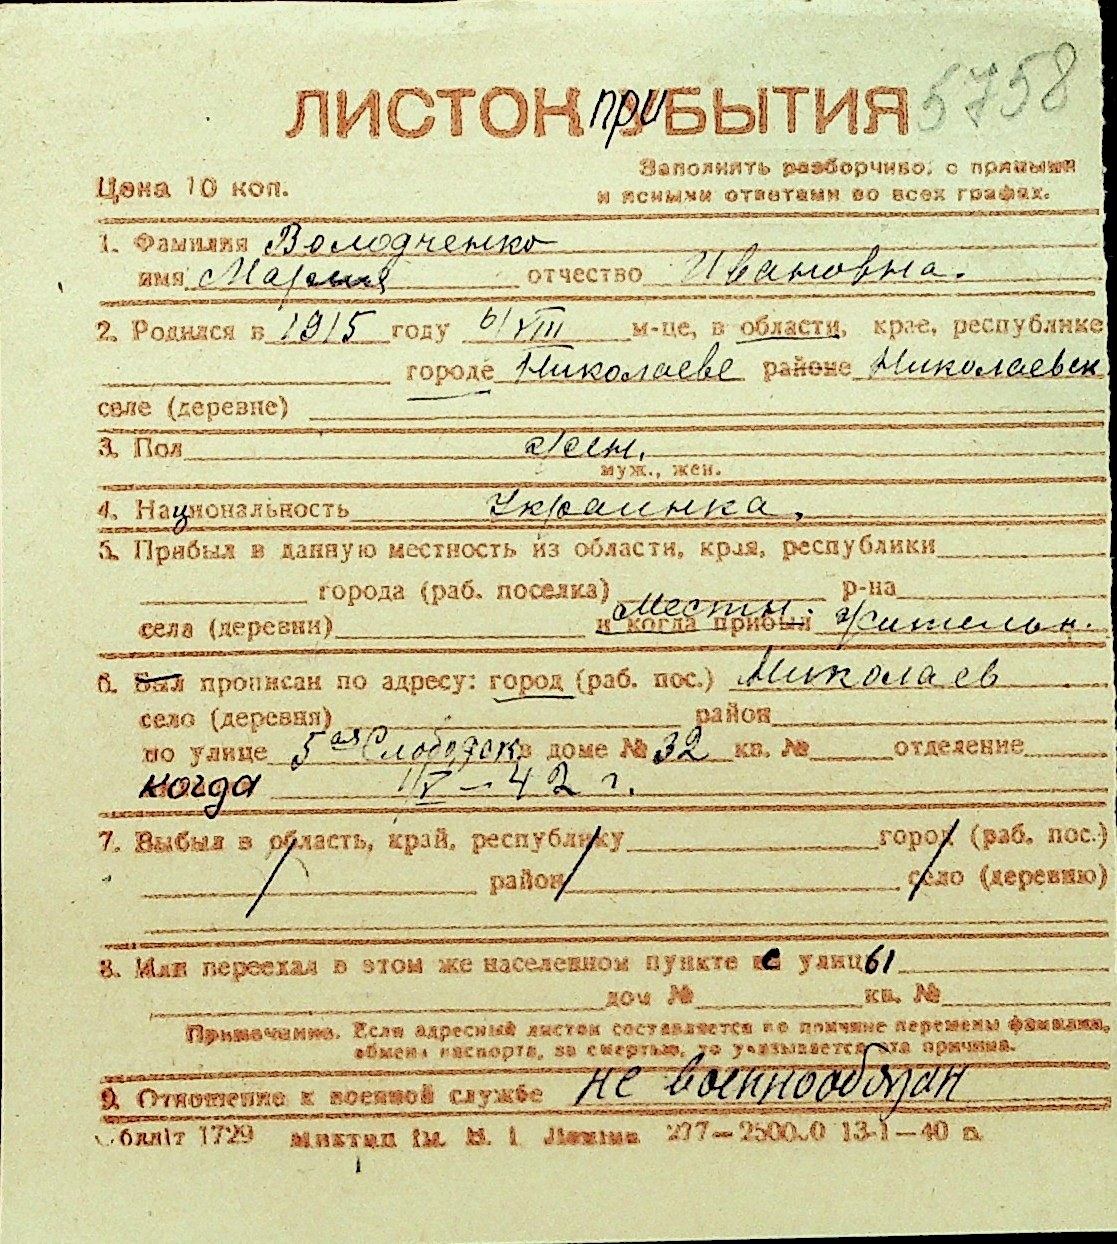 5758
ЛИСТОК приБЫТИЯ
Цена 10 коп.
Заполнять разборчиво, с прямыми
и ясными ответами во всех графах.
1. Фамилия Володченко
имя Мария отчество Ивановна.
2. Родился в 1915 году 6/VIII м-це, в области, крае, республике
городе Николаеве районе Николаевск
селе (деревне)
3. Пол жен.
муж., жен.
4. Национальность Украинка.
5. Прибыл в данную местность из области, края, республики
города (раб. поселка) р-на
села (деревни) и когда прибыл Местн. жительн.
6. Был прописан по адресу: город (раб. пос.) Николаев
село (деревня) район
по улице 5ая Слободск в доме № 32 кв. № отделение
когда 1/V-42 г.
7. Выбыл в область, край, республику город (раб. пос.)
район село (деревню)
8. Или переехал в этом же населенном пункте с улицы
дом № кв. №
Примечание. Если адресный листок составляется по причине перемены фамилии,
обмена паспорта, за смертью, то указывается эта причина.
9. Отношение к военной службе не военнообязан
блліт 1729 ім. В. І. Леніна 277—250000 13-1—40 р.